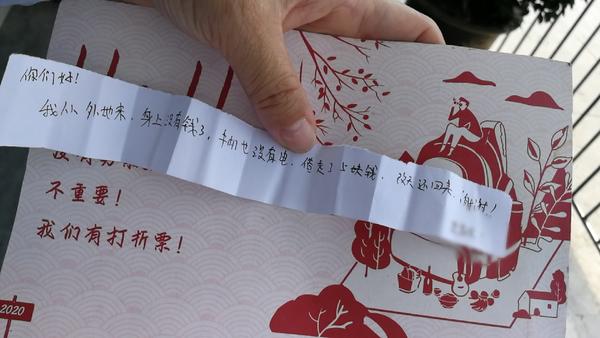 你们好!
我从外地来，身上没有钱了，手机也没有电，借走了5块钱，改天还回来，谢谢!
不重要!
我们有打折票!
2020